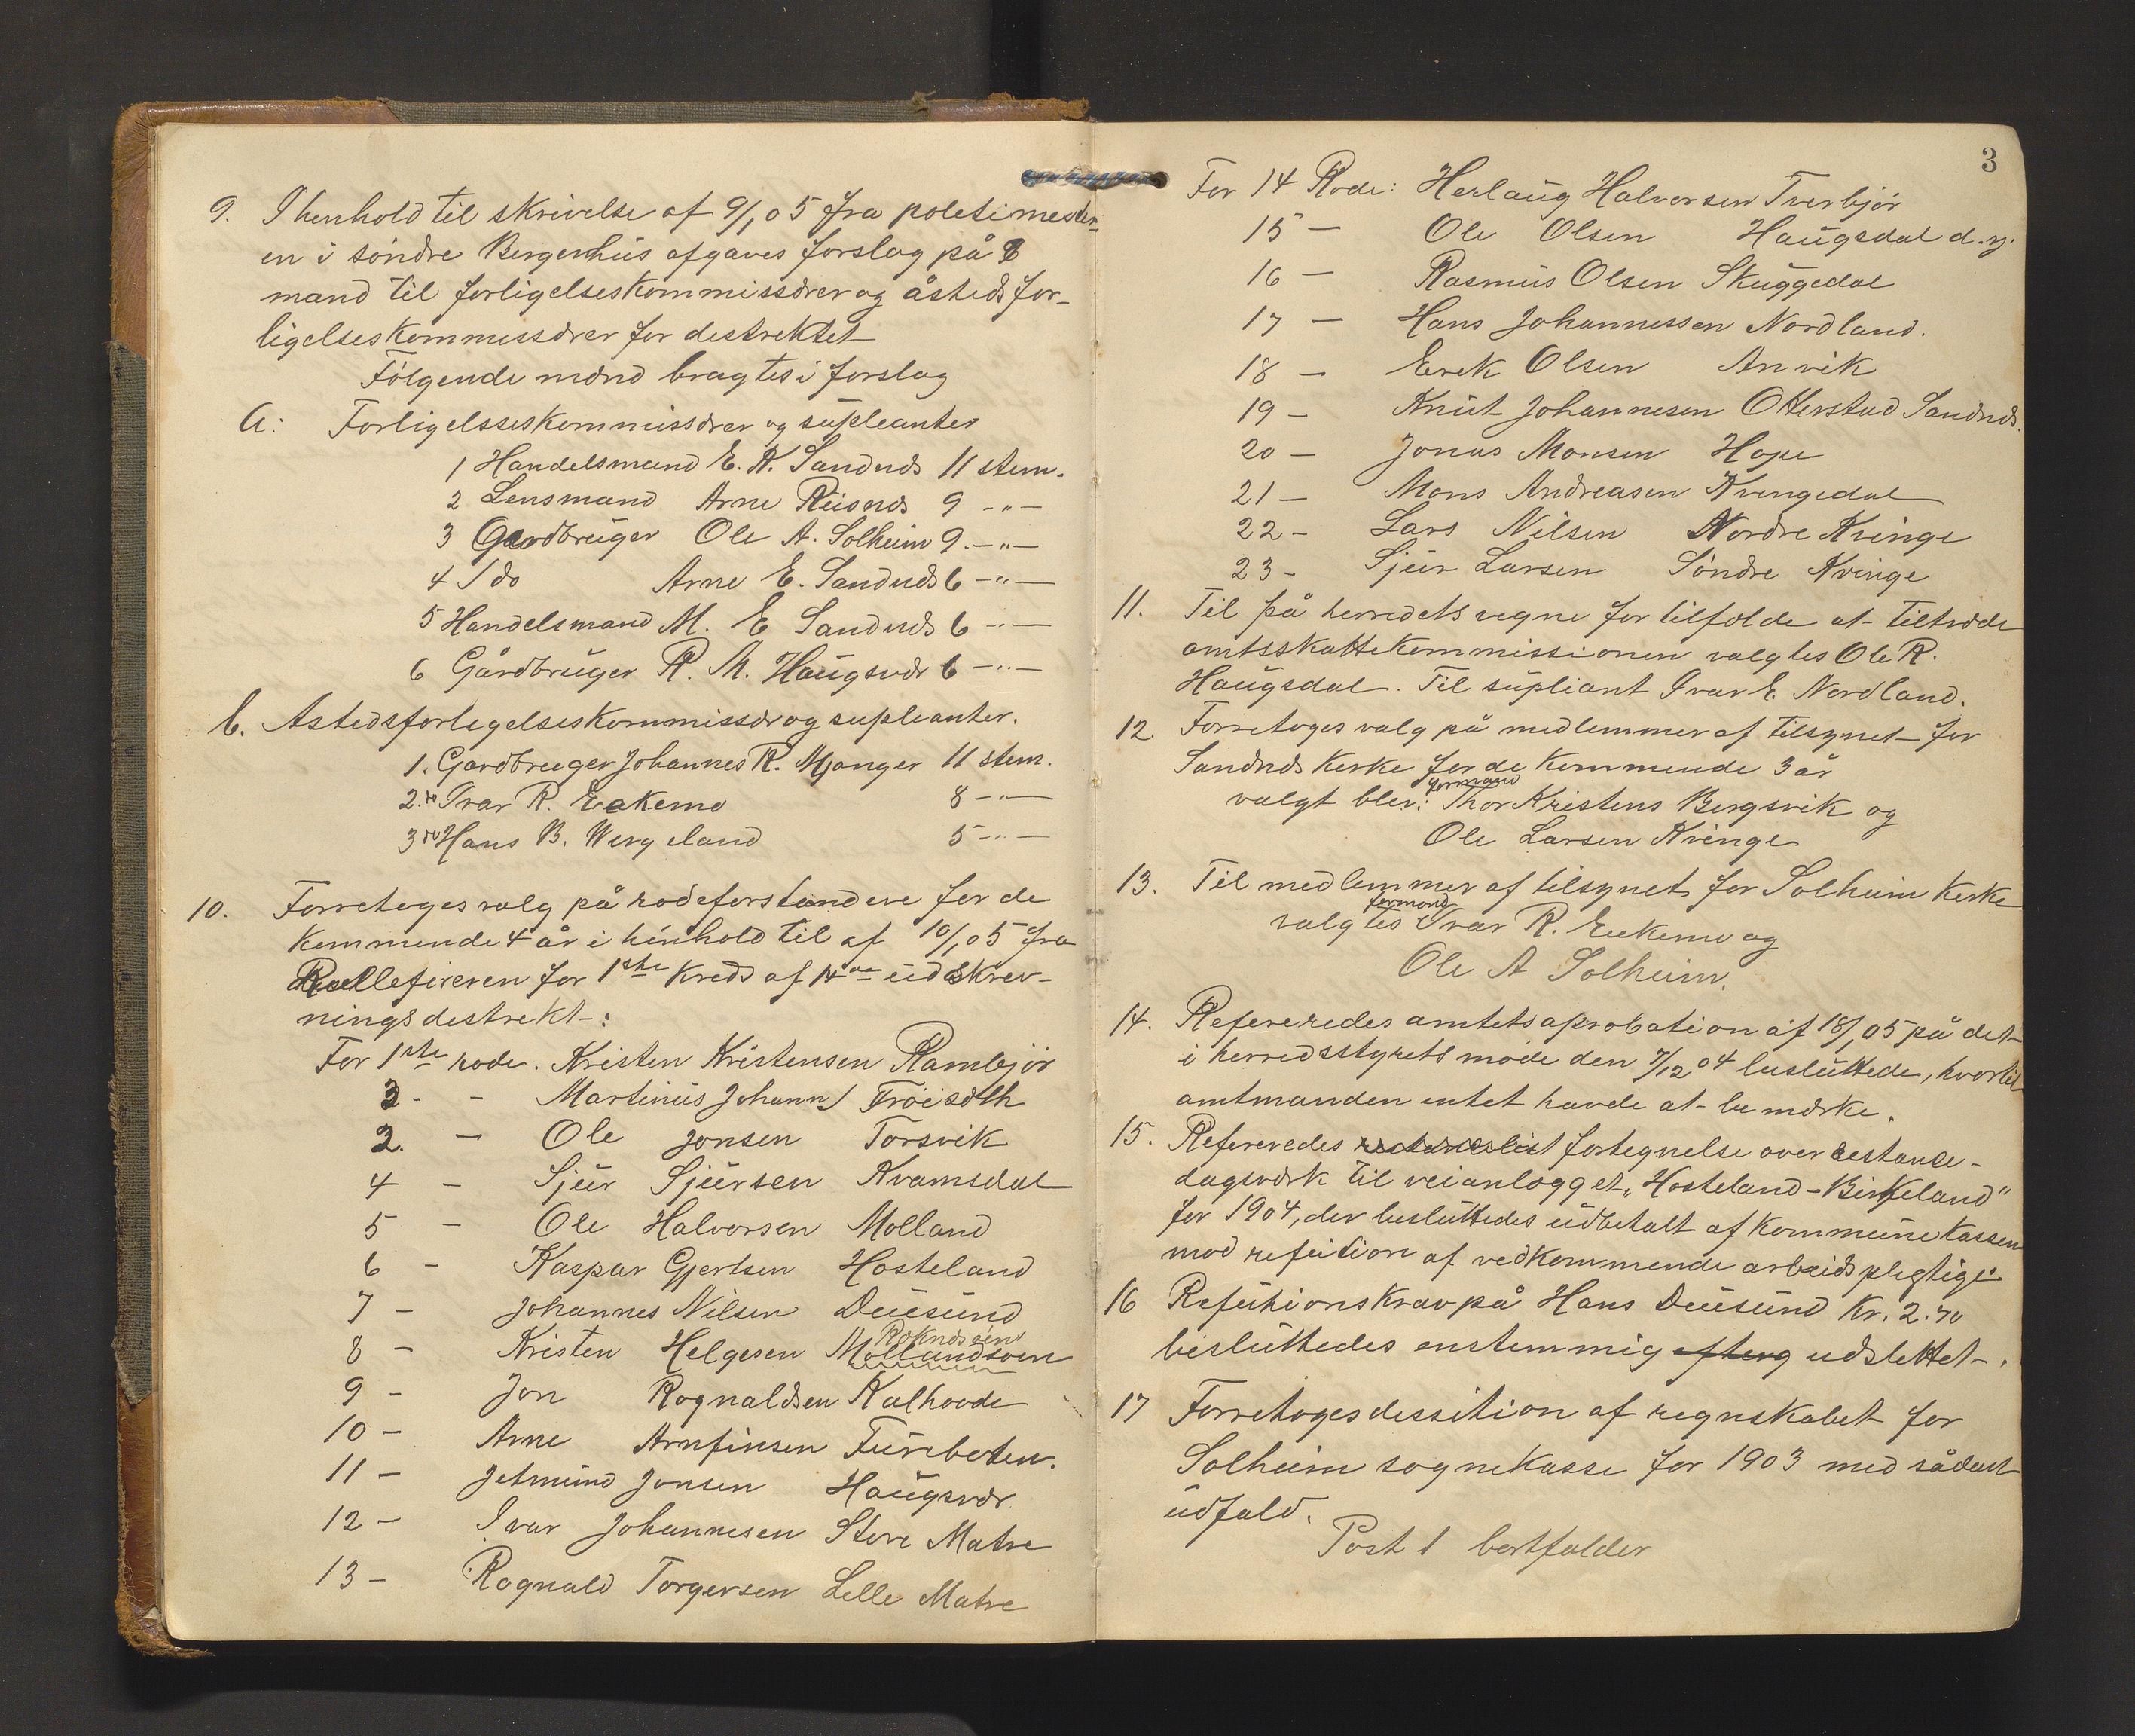 9. I henhold til skrivelse af 9/1 05 fra poletimester-
en i söndre Bergenhus afgaves forslag på 8
mand til forligelseskommissærer og åsteds for-
ligelseskommessærer for destrektet
Fölgende mænd bragtes i forslag
A: Forligelsseskommissærer og supleanter
1 Handelsmand E. K. Sandnæs 11 stem.
2 Lensmand Arne Risnæs 9 -"-
3 Gardbruger Ole A. Solheim 9. -"-
4 do Arne E. Sandnæs 6 -"-
5 Handelsmand M. E Sandnæs 6 -"-
6 Gårdbruger R. M. Haugsvær 6 -"-
b. Astedsforlegelseskommissær og supleanter.
1. Gardbruger Johannes R. Mjanger 11 stem.
2. do Ivar R. Eekemo 8 -"-
3 do Hans B. Wergeland 5 -"-
10. Forretoges valg på rodeforstandere for de
kommende 4 år i henhold til af 10/1 05 fra
Rulleföreren for 1ste kreds af 14de udskrev-
ningsdestrekt:
For 1ste rode. Kristen Kristensen Rambjör
3. - Martinus Johann. Fröisæth
2. - Ole Jonsen Torsvik
4 - Sjur Sjursen Kvamsdal
5 - Ole Halvorsen Molland
6 - Kaspar Gjertsen Hosteland
7 - Johannes Nilsen Duesund
Roknæsöen
8 - Kristen Helgesen Mollandsoen
9 - Jon Rognaldsen Kalhovde
10 - Arne Arnfinsen Fureboten.
11 - Jetmund Jonsen Haugsvær
12 - Ivar Johannesen Store Matre
13 - Rognald Torgersen Lelle Matre
3
For 14 Rode: Herlaug Halvorsen Tverbjör
15 - Ole Olsen Haugsdal d.y.
16 - Rasmus Olsen Skuggedal
17 - Hans Johannessen Nordland.
18 - Erek Olsen Anvik
19 - Knut Johannesen Otterstad Sandnæs.
20 - Jonas Monsen Hope
21 - Mons Andreasen Kvingedal
22 - Lars Nilsen Nordre Kvinge
23 - Sjur Larsen Söndre Kvinge
11. Til på herredets vegne for tilfælde at tiltræde
amtsskattekommissionen valgtes Ole R.
Haugsdal. Til supliant Ivar E. Nordland.
12 Forretoges valg på medlemmer af tilsynet for
Sandnæs kerke for de kommende 3 år
formand
valgt blev: Thor Kristens Bergsvik og
Ole Larsen Kvinge
13. Til medlemmer af tilsynet for Solheim kerke
formand
valgtes Ivar R. Eekemo og
Ole A Solheim.
14. Refereredes amtets aprobation af 18/1 05 på det
i herredsstyrets möde den 7/12 04 besluttede, hvortil
amtmanden intet havde at bemærke.
15. Refereredes restanceslist fortegnelse over restance-
dagsværk til veianlægget "Hosteland-Birkeland"
for 1904, der besluttedes udbetalt af kommunekassen
mod refution af vedkommende arbeidspligtige.
16 Refutionskrav på Hans Duesund Kr. 2.70
besluttedes enstemmig udslettet.
17 Forretoges dessition af regnskabet for
Solheim sognekasse for 1903 med sådant
udfald.
Post 1 bortfalder